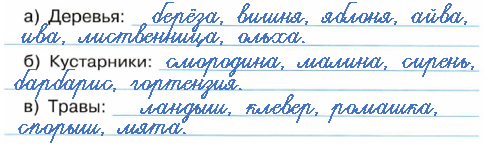 а) Деревья: берёза, вишня, яблоня, айва,
ива, лиственница, ольха.
б) Кустарники: смородина, малина, сирень,
барбарис, гортензия.
в) Травы: ландыш, клевер, ромашка,
спорыш, мята.